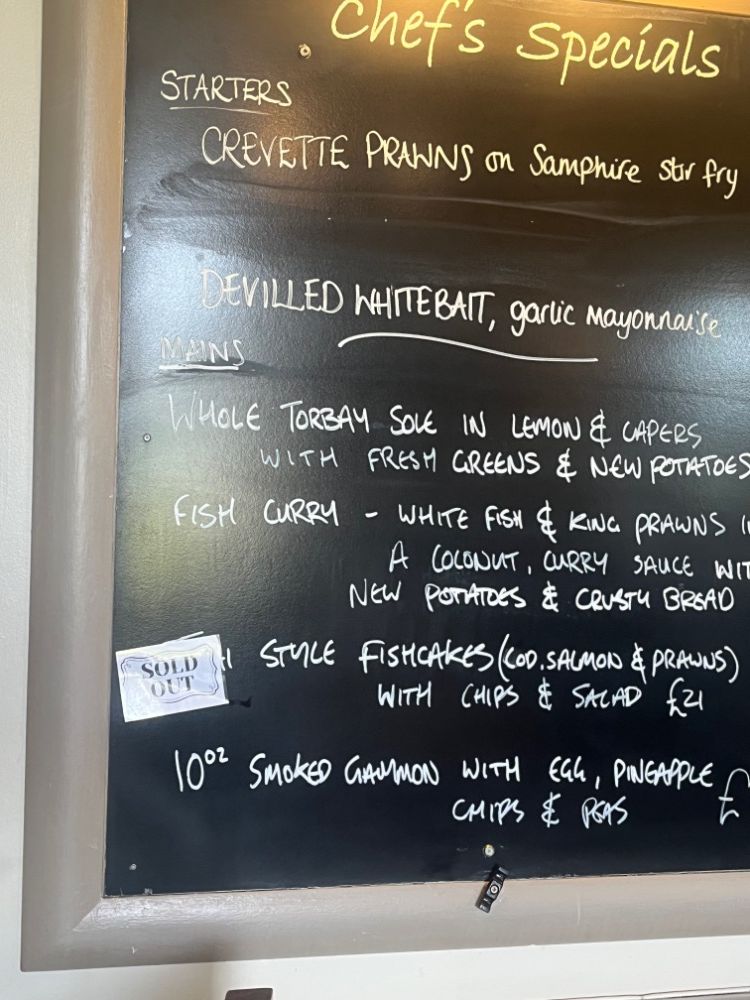 Chef's Specials
STARTERS
CREVETTE PRAWNS on Samphire stir fry
DEVILLED WHITEBAIT, garlic mayonnaise
MAINS
WHOLE TORBAY SOLE IN LEMON & CAPERS
WITH FRESH GREENS & NEW POTATOES
FISH CURRY - WHITE FISH & KING PRAWNS
A COCONUT, CURRY SAUCE
NEW POTATOES & CRUSTY BREAD
SOLD
OUT
STYLE FISHCAKES (COD, SALMON & PRAWNS)
WITH CHIPS & SALAD £21
10oz SMOKED GAMMON WITH EGG, PINEAPPLE £
CHIPS & PEAS